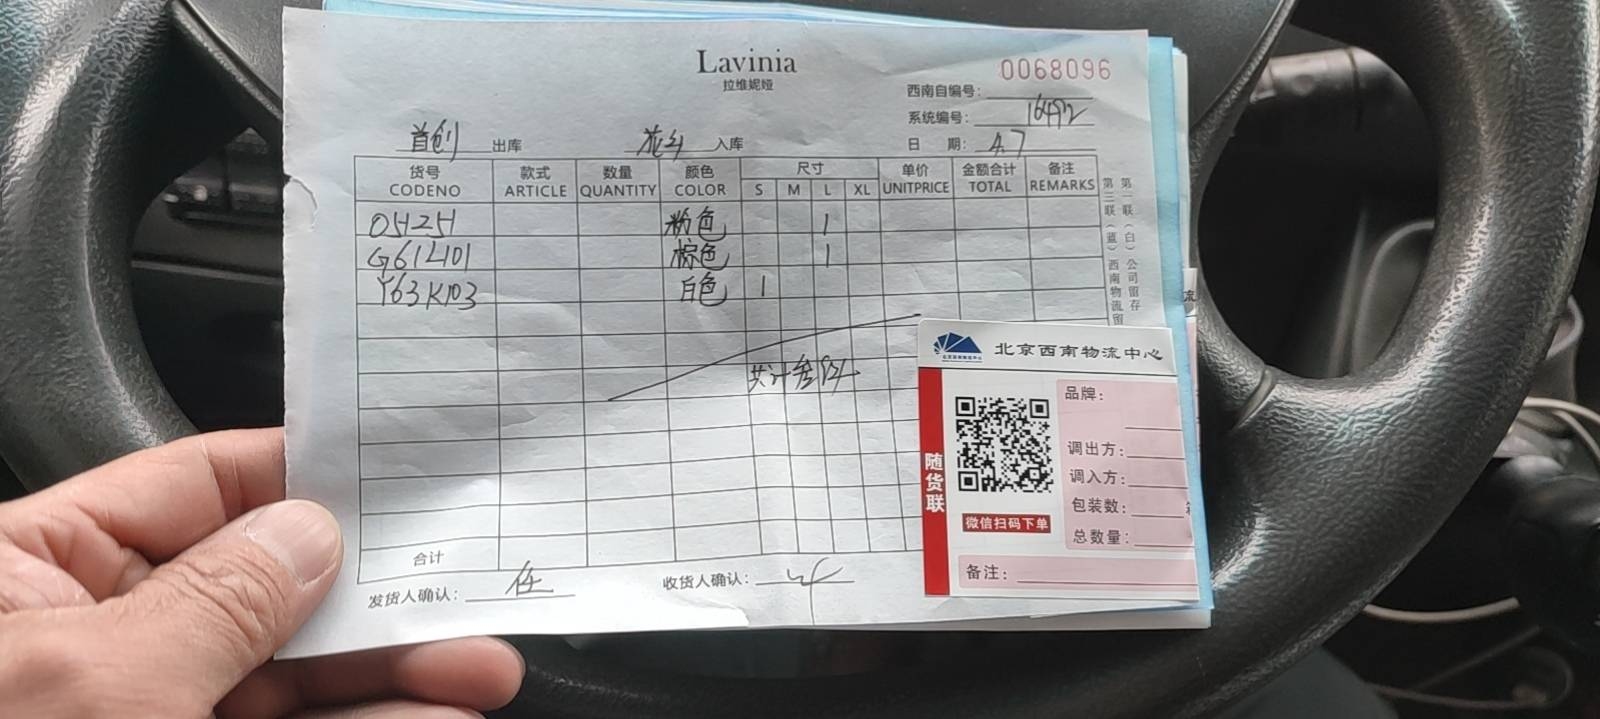 Lavinia
拉维妮娅
0068096
西南自编号:
系统编号: 16492
首创 出库 花乡 入库 日 期: 4.7
货号 款式 数量 颜色 尺寸 单价 金额合计 备注
CODENO ARTICLE QUANTITY COLOR S M L XL UNITPRICE TOTAL REMARKS
O51251 粉色 1
G61L101 棕色 1
Y63K103 白色 1
共计叁件
合计
发货人确认: 任 收货人确认:
第一联(白)公司留存
第三联(蓝)西南物流留
北京西南物流中心
随货联
微信扫码下单
品牌:
调出方:
调入方:
包装数:
总数量:
备注: